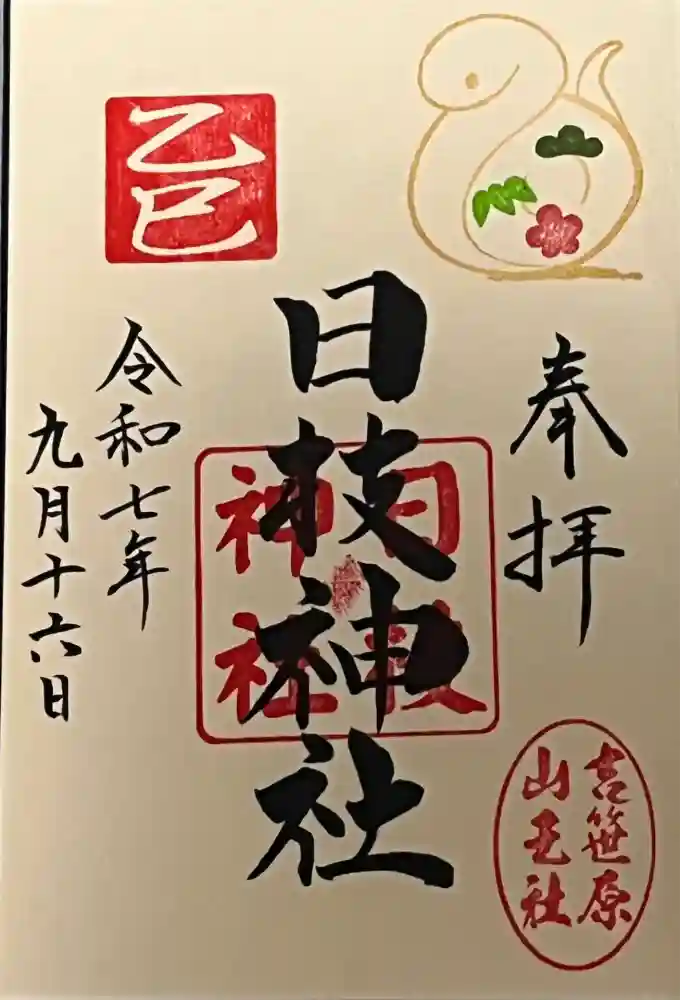 奉拝
日枝神社
令和七年
九月十六日
乙巳
日枝
神社
吉笹原
山王社